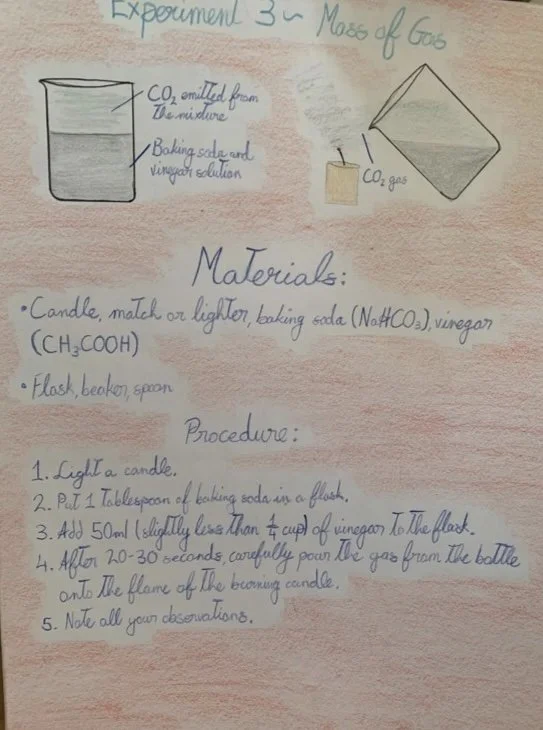 Experiment 3~ Mass of Gas
CO₂ emitted from
the mixture
Baking soda and
vinegar solution
CO₂ gas
Materials:
• Candle, match or lighter, baking soda (NaHCO₃), vinegar
(CH₃COOH)
• Flask, beaker, spoon
Procedure:
1. Light a candle.
2. Put 1 Tablespoon of baking soda in a flask.
3. Add 50ml (slightly less than 1/4 cup) of vinegar to the flask.
4. After 20-30 seconds, carefully pour the gas from the bottle
onto the flame of the burning candle.
5. Note all your observations.